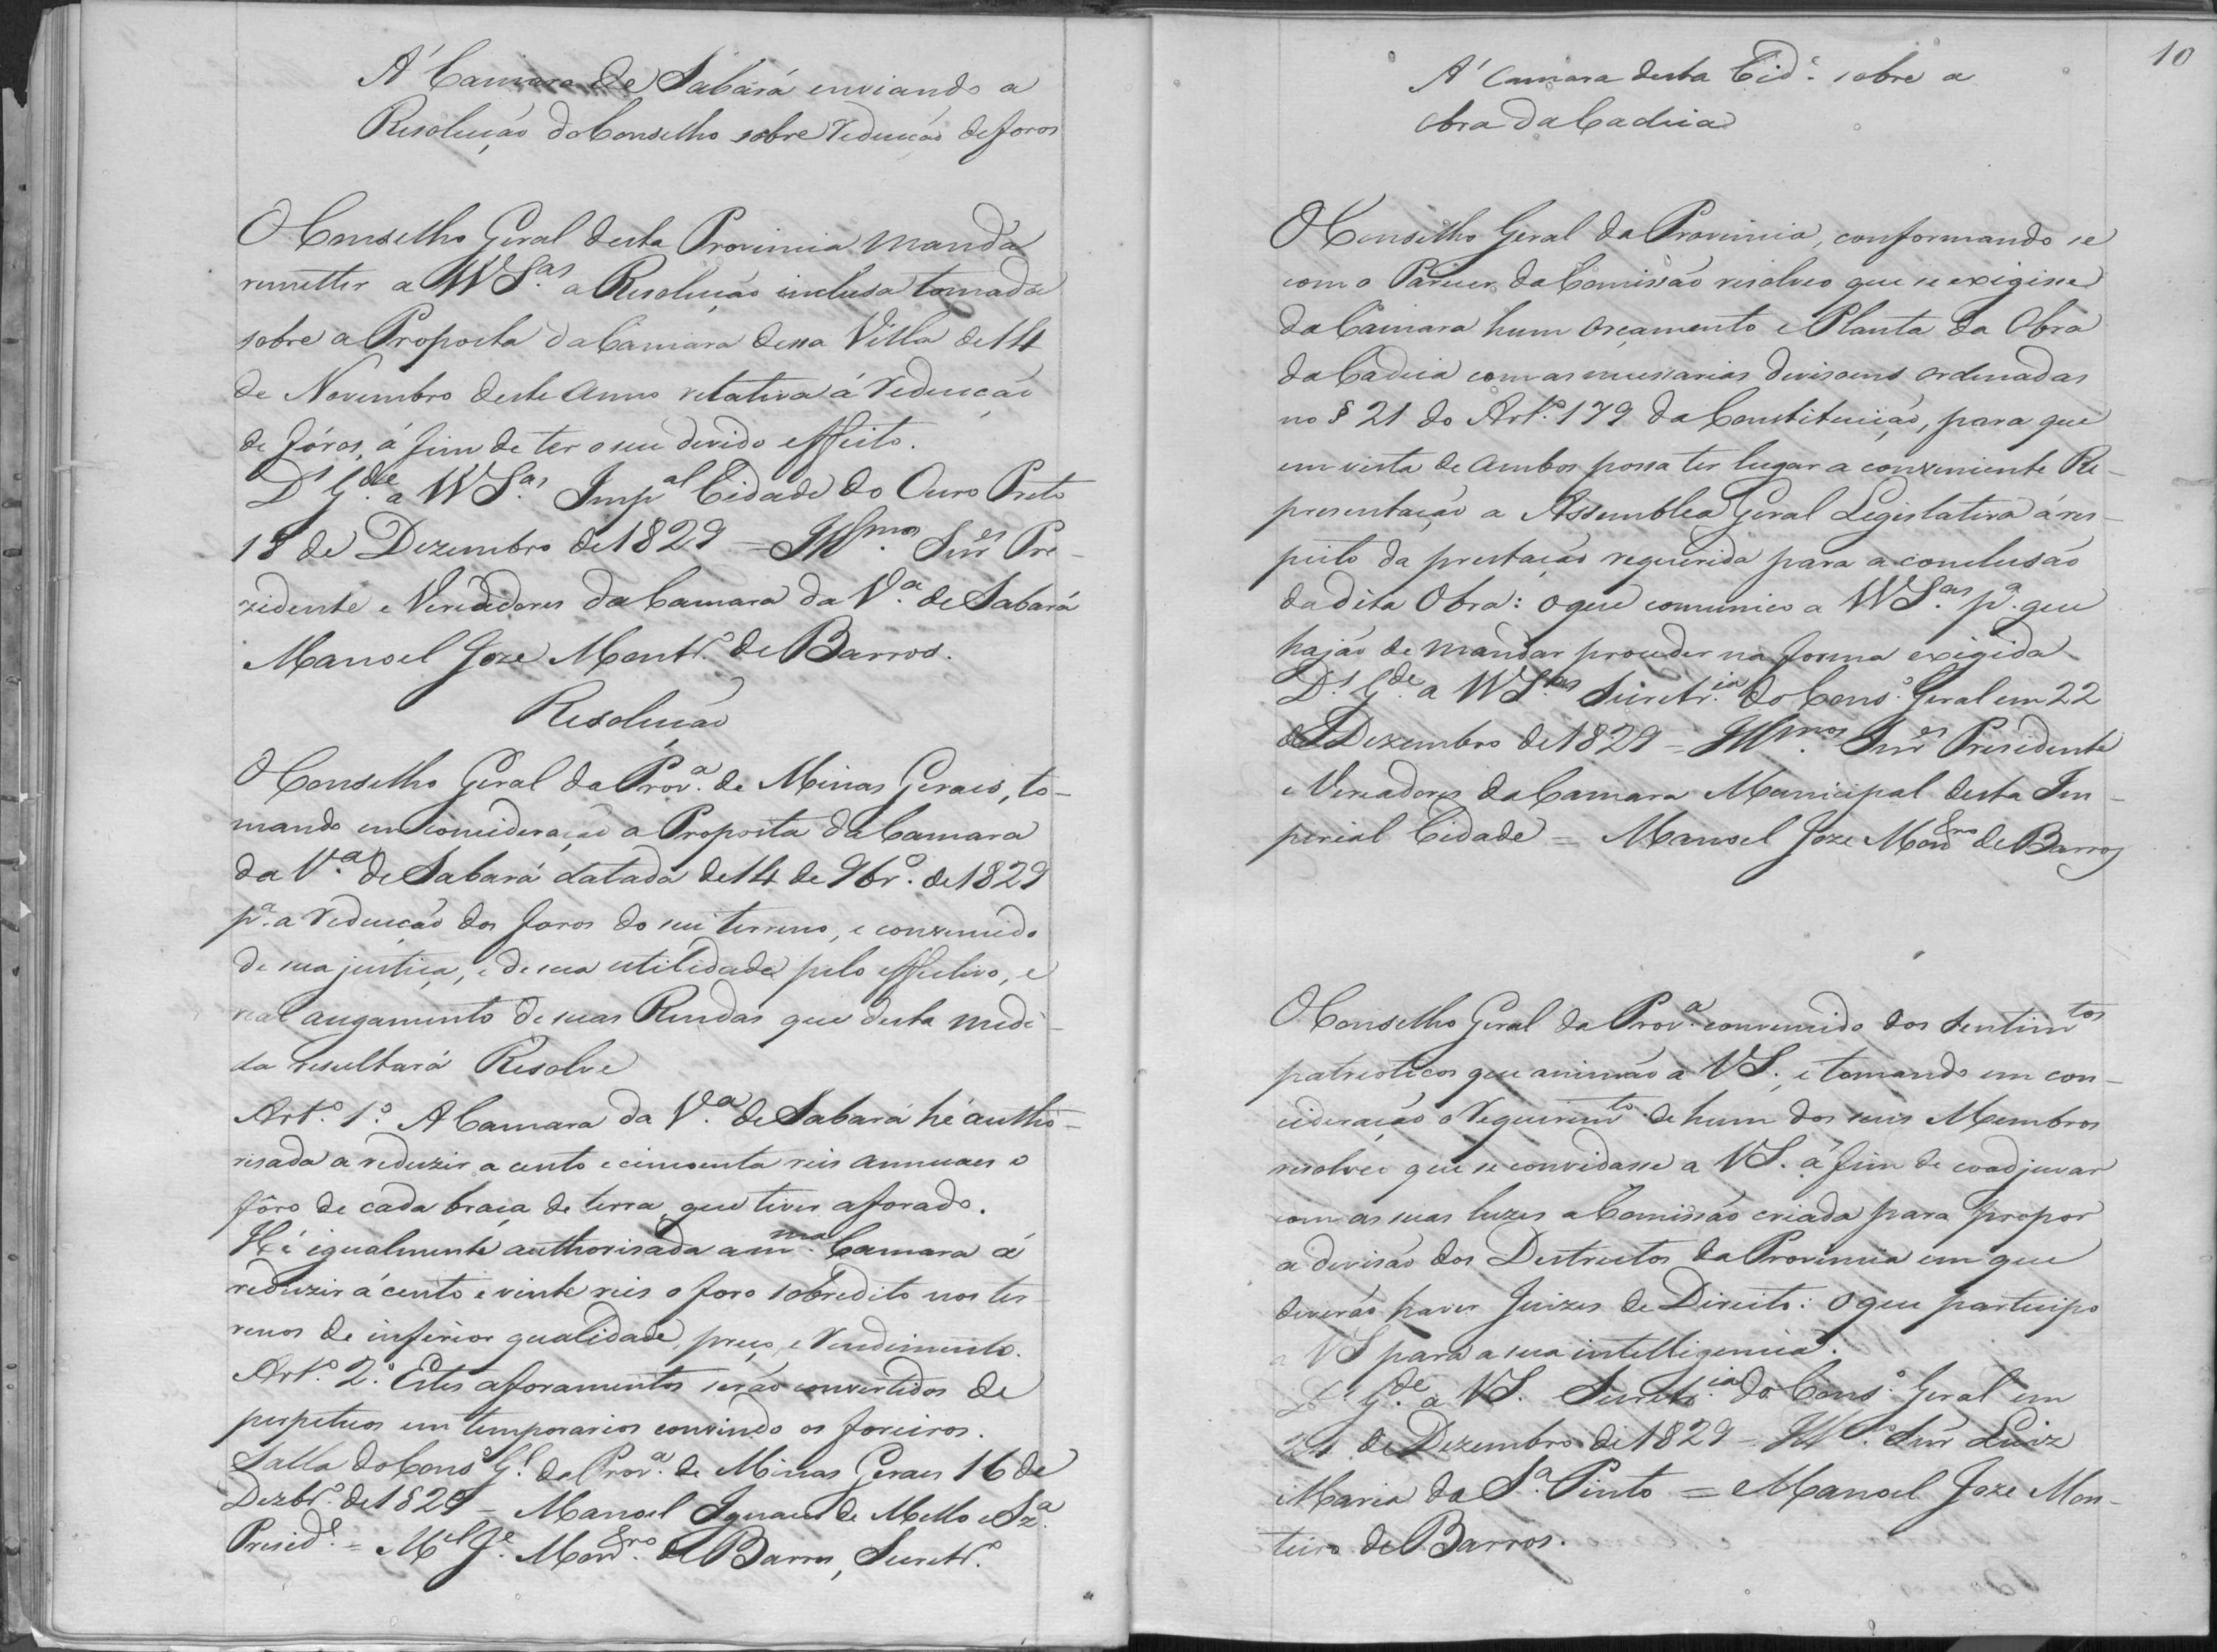 A' Camara de Sabará enviando a
Resolução do Conselho sobre reducção de foros
O Conselho Geral desta Provincia manda
remetter a VVS.as a Resolução inclusa tomada
sobre a Proposta da Camara dessa Villa de 14
de Novembro deste anno relativa á reducção
de fóros, á fim de ter o seu devido effeito.
D.s G.de a VVS.as Imp.al Cidade do Ouro Preto
18 de Dezembro de 1829 = Ill.mos Snr.es Pre-
zidente e Vereadores da Camara da V.a de Sabará
Manoel Joze Montr.o de Barros.
Resolução
O Conselho Geral da Prov.a de Minas Geraes, to-
mando em concideração a Proposta da Camara
da V.a de Sabará datada de 14 de 9br.o de 1829
p.a a reducção dos foros do seu terreno, e convencido
de sua justiça, e de sua utilidade pelo effectivo, e
real augamento de suas Rendas que desta medi-
da resultará Resolve
Art.o 1.o A Camara da V.a de Sabará hé autho-
risada a reduzir a cento e cincoenta reis annuaes o
fôro de cada braça de terra que tiver aforado.
Hé igualmente authorisada a m.ma Camara á
reduzir á cento e vinte reis o foro sobredito nos ter-
renos de inferior qualidade, preço, e rendimento.
Art.o 2.o Estes aforamentos serão convertidos de
perpetuos em temporarios convindo os foreiros.
Salla do Cons.o G.l da Prov.a de Minas Geraes 16 de
Dezbr.o de 1829 = Manoel Ignacio de Mello e Sz.a
Presid.e = M.el J.e Montr.o de Barros, Secretr.o
10
A' Camara desta Cid.e sobre a
obra da Cadeia
O Conselho Geral da Provincia, conformando se
com o Parecer da Comissão resolveo que se exigisse
da Camara hum Orçamento e Planta da Obra
da Cadeia com as necessarias divisoens ordenadas
no § 21 do Art.o 179 da Constituição, para que
em vista de ambos possa ter lugar a conveniente Re-
presentação a Assemblea Geral Legislativa á res-
peito da prestação requerida para a conclusão
da dita Obra: o que comunico a VVS.as p.a que
hajão de mandar proceder na forma exigida
D.s G.de a VVS.as Secretr.ia do Cons.o Geral em 22
de Dezembro de 1829 = Ill.mos Snr.es Presidente
e Vereadores da Camara Municipal desta Im-
perial Cidade = Manoel Joze Montr.o de Barros
O Conselho Geral da Prov.a convencido dos sentim.tos
patrioticos que animão a VS., e tomando em con-
cideração o requerim.to de hum dos seus Membros
resolveo que se convidasse a VS. á fim de coadjuvar
com as suas luzes a Comissão criada para propor
a divisão dos Destrictos da Provincia em que
deverão haver Juizes de Direito: o que participo
a VS para a sua intelligencia.
D.s G.de a VS. Secretr.ia do Cons.o Geral em
de Dezembro de 1829 = Ill.o Snr Luiz
Maria da S.a Pinto = Manoel Joze Mon-
teiro de Barros.